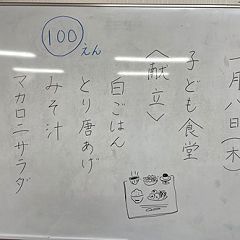 一月八日(木)
子ども食堂
〈献立〉
白ごはん
とり唐あげ
みそ汁
マカロニサラダ
100えん